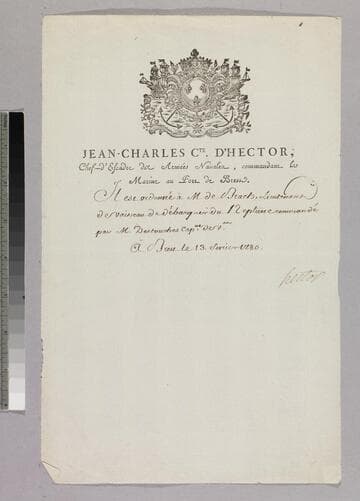 JEAN-CHARLES Cte. D'HECTOR,
Chef-d'Escadre des Armées Navales, commandant la
Marine au Port de Brest.
Il est ordonné à M. de Lieutenant
de vaisseau de débarquer du Neptune commandé
par M. Destouches Capne. de Vau.
À Brest le 13. fevrier 1780.
hector